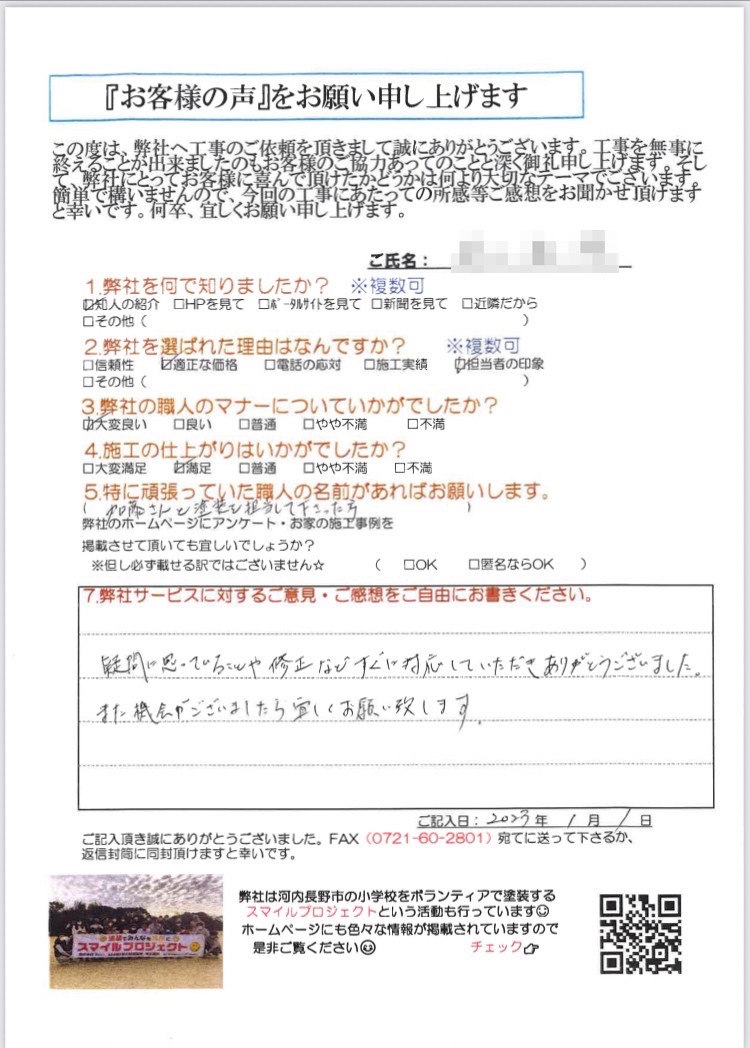 『お客様の声』をお願い申し上げます
この度は、弊社へ工事のご依頼を頂きまして誠にありがとうございます。工事を無事に
終えることが出来ましたのもお客様のご協力あってのことと深く御礼申し上げます。そし
て、弊社にとってお客様に喜んで頂けたかどうかは何より大切なテーマでございます。
簡単で構いませんので、今回の工事にあたっての所感等ご感想をお聞かせ頂けます
と幸いです。何卒、宜しくお願い申し上げます。
ご氏名：
1.弊社を何で知りましたか？ ※複数可
☑知人の紹介 □HPを見て □ﾎﾟｰﾀﾙｻｲﾄを見て □新聞を見て □近隣だから
□その他（ ）
2.弊社を選ばれた理由はなんですか？ ※複数可
□信頼性 ☑適正な価格 □電話の応対 □施工実績 ☑担当者の印象
□その他（ ）
3.弊社の職人のマナーについていかがでしたか？
☑大変良い □良い □普通 □やや不満 □不満
4.施工の仕上がりはいかがでしたか？
□大変満足 ☑満足 □普通 □やや不満 □不満
5.特に頑張っていた職人の名前があればお願いします。
（ 加藤さんと塗装を担当して下さった方 ）
弊社のホームページにアンケート・お家の施工事例を
掲載させて頂いても宜しいでしょうか？
※但し必ず載せる訳ではございません☆ （ □OK □匿名ならOK ）
7.弊社サービスに対するご意見・ご感想をご自由にお書きください。
疑問に思っていることや修正などすぐに対応していただきありがとうございました。
また機会がございましたら宜しくお願い致します。
ご記入日：2023年 1月 1日
ご記入頂き誠にありがとうございました。FAX（0721-60-2801）宛てに送って下さるか、
返信封筒に同封頂けますと幸いです。
弊社は河内長野市の小学校をボランティアで塗装する
スマイルプロジェクトという活動も行っています☺
ホームページにも色々な情報が掲載されていますので
是非ご覧ください☺ チェック👉
スマイルプロジェクト